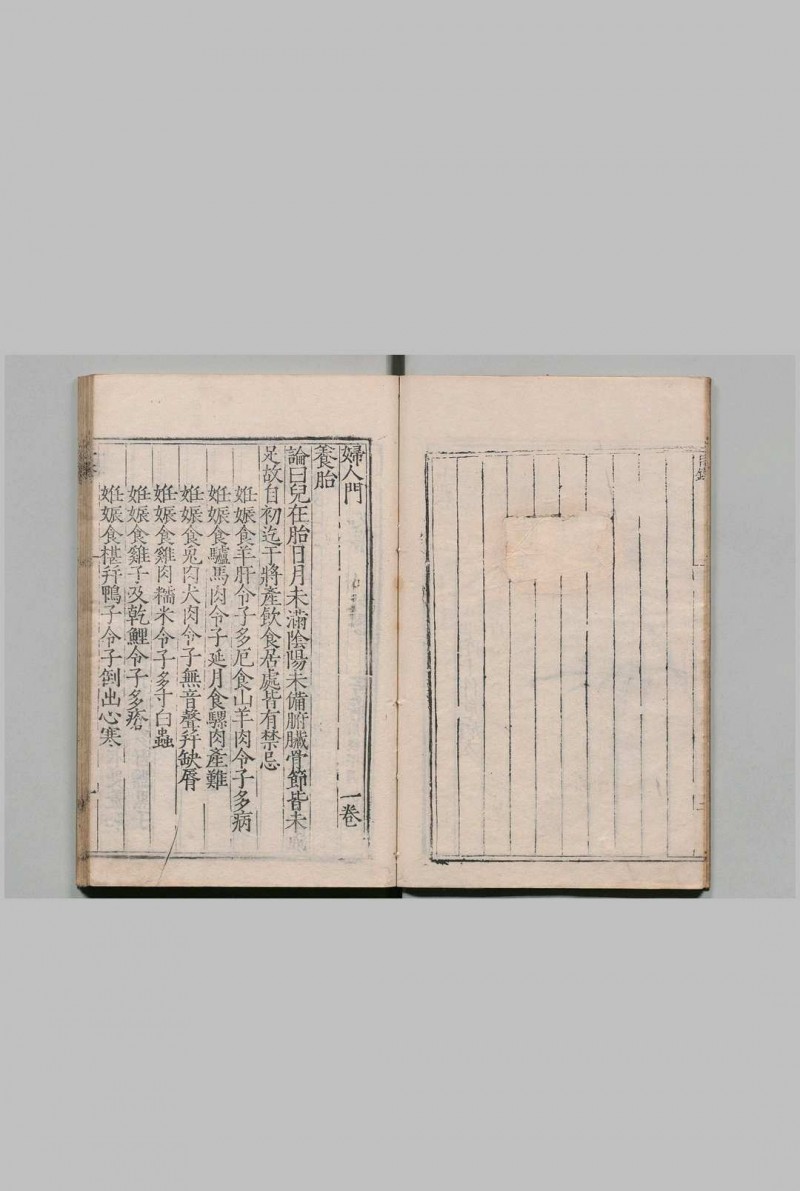 婦人門　一卷
養胎
論曰兒在胎日月未滿陰陽未備腑臟骨節皆未
足故自初迄于將產飲食居處皆有禁忌
妊娠食羊肝令子多厄食山羊肉令子多病
妊娠食驢馬肉令子延月食騾肉產難
妊娠食兔肉犬肉令子無音聲幷缺脣
妊娠食雞肉糯米令子多寸白蟲
妊娠食雞子及乾鯉令子多瘡
妊娠食椹幷鴨子令子倒出心寒